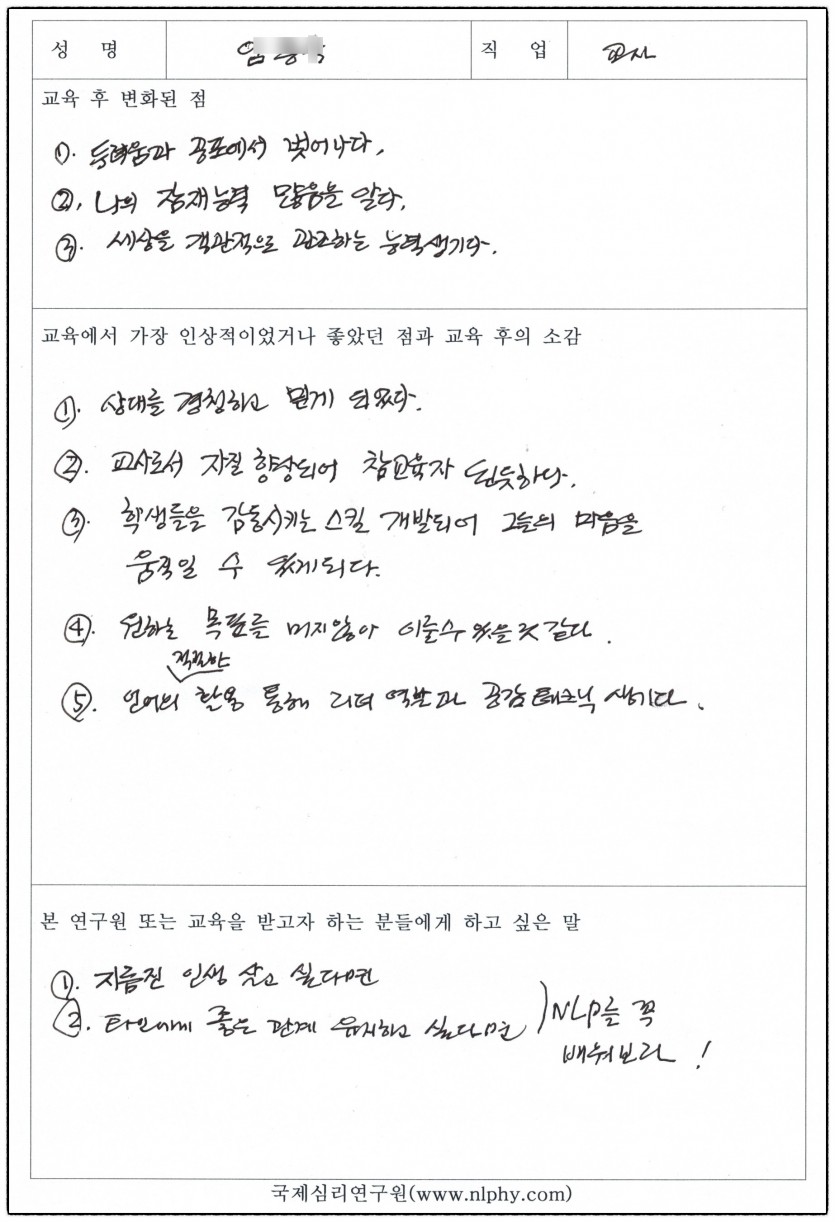 성 명
직 업 교사
교육 후 변화된 점
①. 두려움과 공포에서 벗어나다.
②. 나의 잠재능력 많음을 알다.
③. 세상을 객관적으로 관조하는 능력생기다.
교육에서 가장 인상적이었거나 좋았던 점과 교육 후의 소감
①. 상대를 경청하고 믿게 되었다.
②. 교사로서 자질 향상되어 참교육자 된듯하다.
③. 학생들을 감동시키는 스킬 개발되어 그들의 마음을
움직일 수 있게되다.
④. 원하는 목표를 머지않아 이룰수 있을것 같다.
적절한
⑤. 언어의 활용 통해 리더 역할과 공감 테크닉 생기다.
본 연구원 또는 교육을 받고자 하는 분들에게 하고 싶은 말
①. 인생 살고 싶다면
②. 타인에게 좋은 관계 유지하고 싶다면
NLP를 꼭
배워보라 !
국제심리연구원(www.nlphy.com)